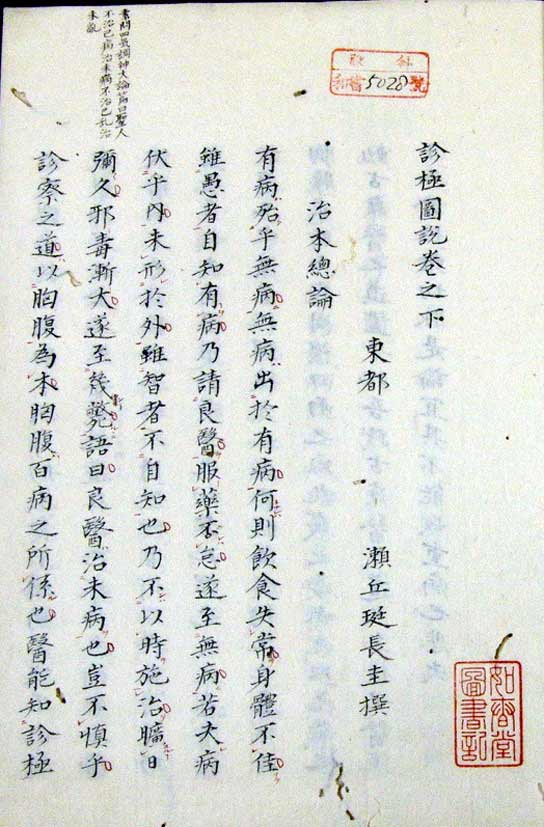 診極圖說卷之下
東都 瀨丘珽長圭撰
治本總論
有病殆乎無病無病出於有病何則飲食失常身體不佳
雖愚者自知有病乃請良醫服藥不怠遂至無病若夫病
伏乎內未形於外雖智者不自知也乃不以時施治曠日
彌久邪毒漸大遂至幾斃語曰良醫治未病也豈不慎乎
診察之道以胸腹為本胸腹百病之所係也醫能知診極
素問四氣調神大論篇曰聖人
不治已病治未病不治已亂治
未亂
5028
號
如春堂
圖書記